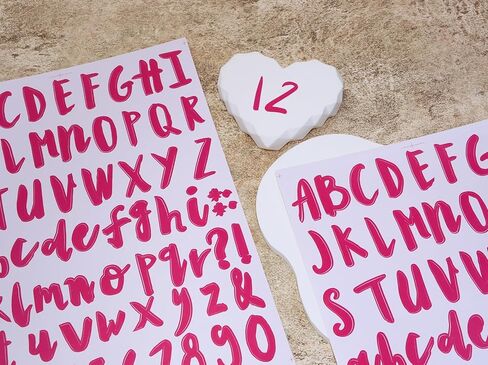 CDEFGHI
KLMNOPQR
TUVWXYZ
bcdefghi:*
klmnopqr?!
tuvwxyz&
7890
12
ABCDEFG
JKLMNO
STUV
abcde